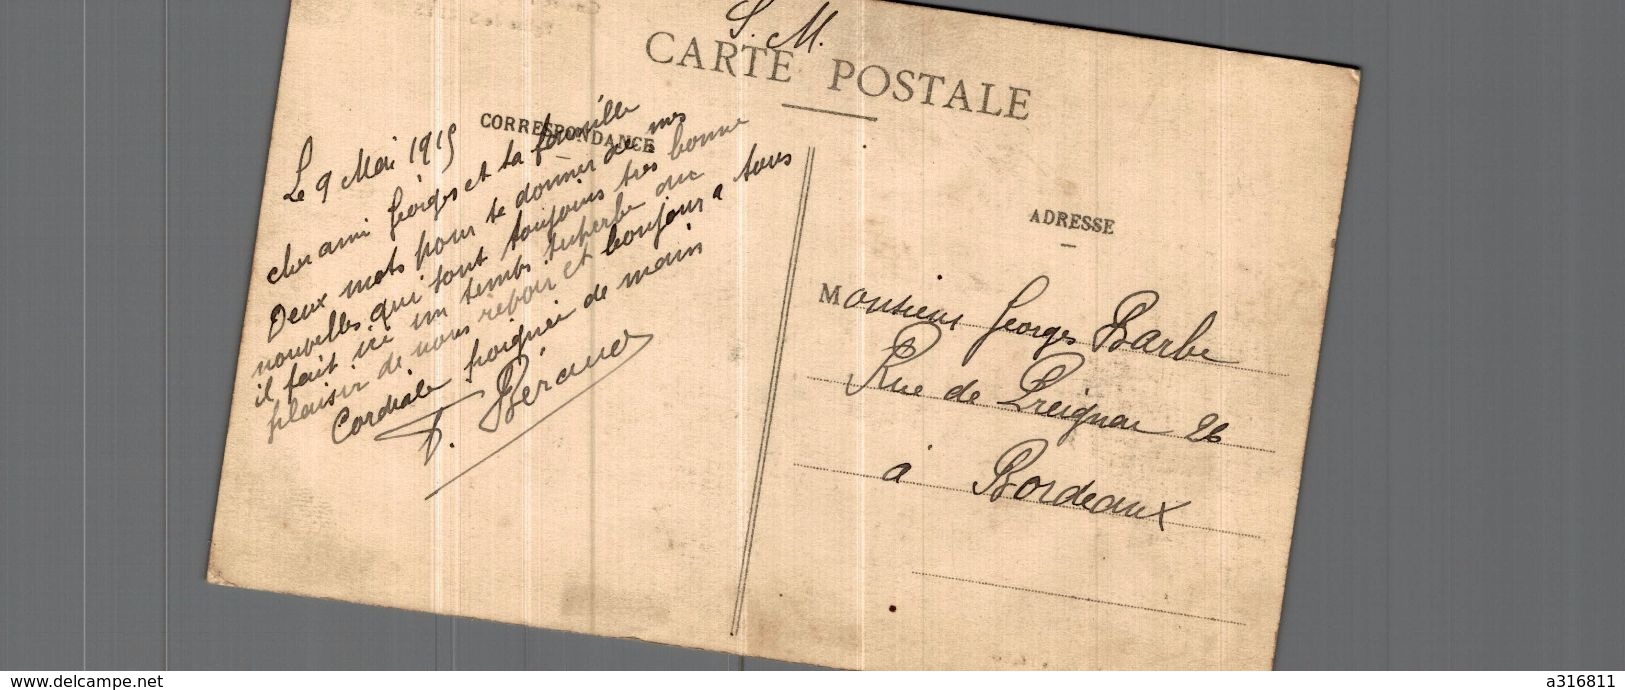 S. M.
CARTE POSTALE
CORRESPONDANCE
Le 9 Mai 1915
cher ami Georges et ta famille
Deux mots pour te donner de mes
nouvelles qui sont toujours tres bonne
il fait ici un temps superbe au
plaisir de vous revoir et bonjour a tous
Cordiale poignée de main
F. Béraud
ADRESSE
Monsieur Georges Barbe
Rue de Preignac 26
à Bordeaux
www.delcampe.net
a316811